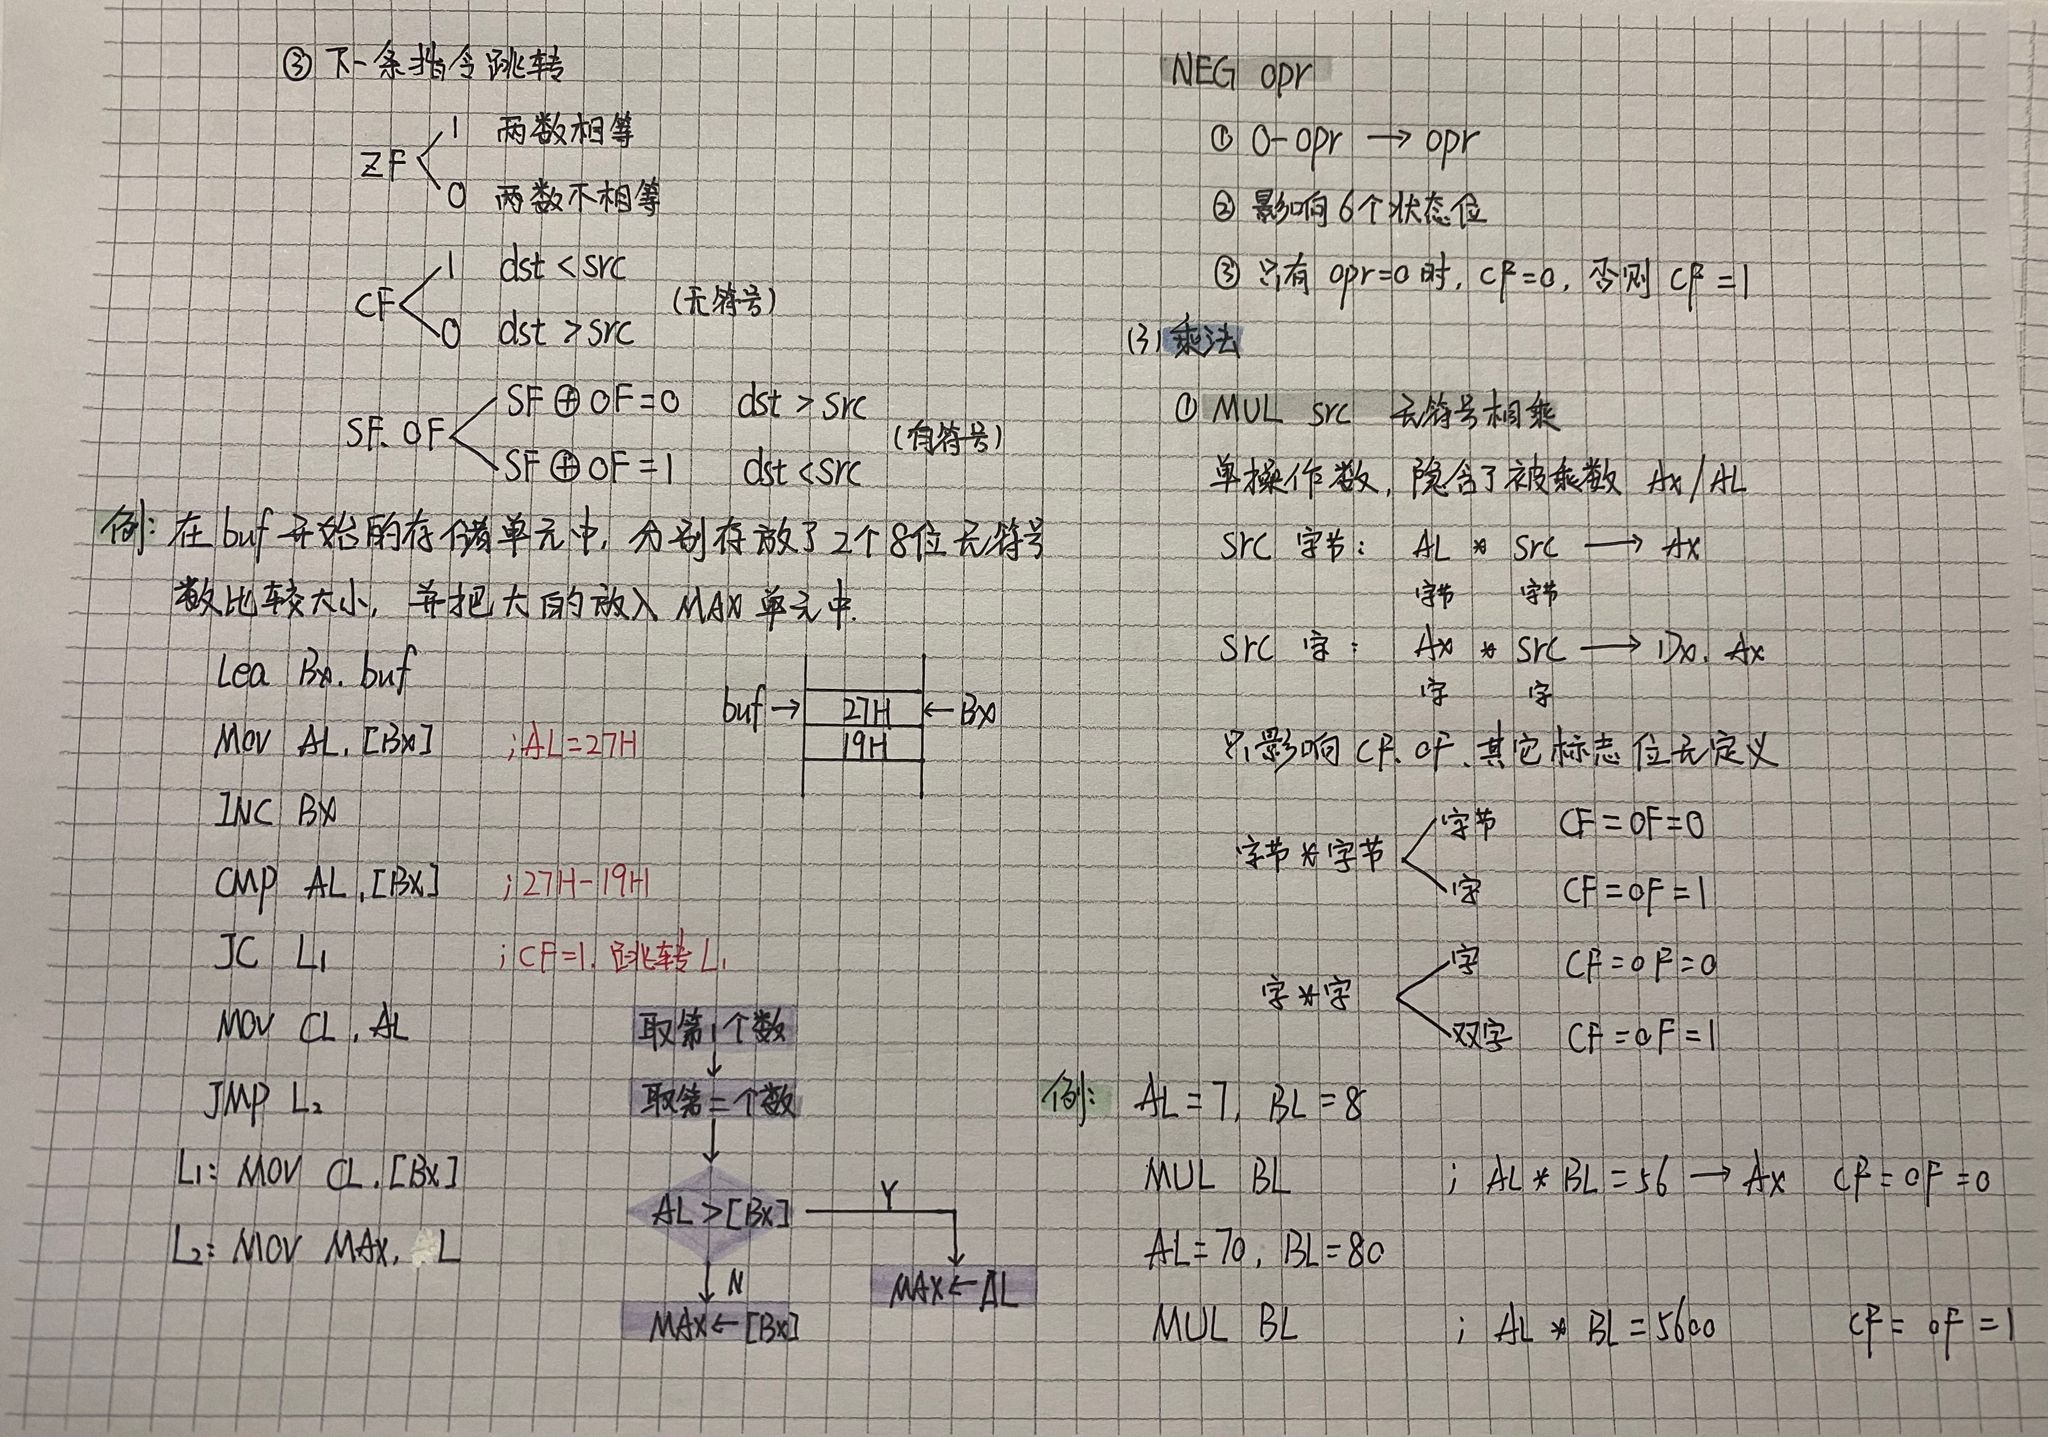 ③ 下一条指令跳转
ZF 1 两数相等
0 两数不相等
CF 1 dst < src
0 dst > src (无符号)
SF. OF SF ⊕ OF = 0 dst > src
SF ⊕ OF = 1 dst < src (有符号)
例: 在 buf 开始的存储单元中, 分别存放了2个8位无符号
数比较大小, 并把大的放入 MAX 单元中.
Lea BX. buf
MOV AL. [BX] ; AL=27H
INC BX
CMP AL. [BX] ; 27H-19H
JC L1 ; CF=1. 跳转 L1
MOV CL. AL
JMP L2
L1: MOV CL. [BX]
L2: MOV MAX. L
buf → 27H ← BX
19H
取第1个数
取第二个数
AL > [BX] Y
N
MAX ← AL
MAX ← [BX]
NEG opr
① 0-opr → opr
② 影响6个状态位
③ 只有 opr=0 时, CF=0, 否则 CF=1
(3) 乘法
① MUL src 无符号相乘
单操作数, 隐含了被乘数 AX/AL
src 字节: AL * src → AX
字节 字节
src 字: AX * src → DX. AX
字 字
只影响 CF. OF. 其它标志位无定义
字节*字节 字节 CF=OF=0
字 CF=OF=1
字*字 字 CF=OF=0
双字 CF=OF=1
例: AL=7, BL=8
MUL BL ; AL * BL = 56 → AX CF=OF=0
AL=70, BL=80
MUL BL ; AL * BL = 5600 CF=OF=1